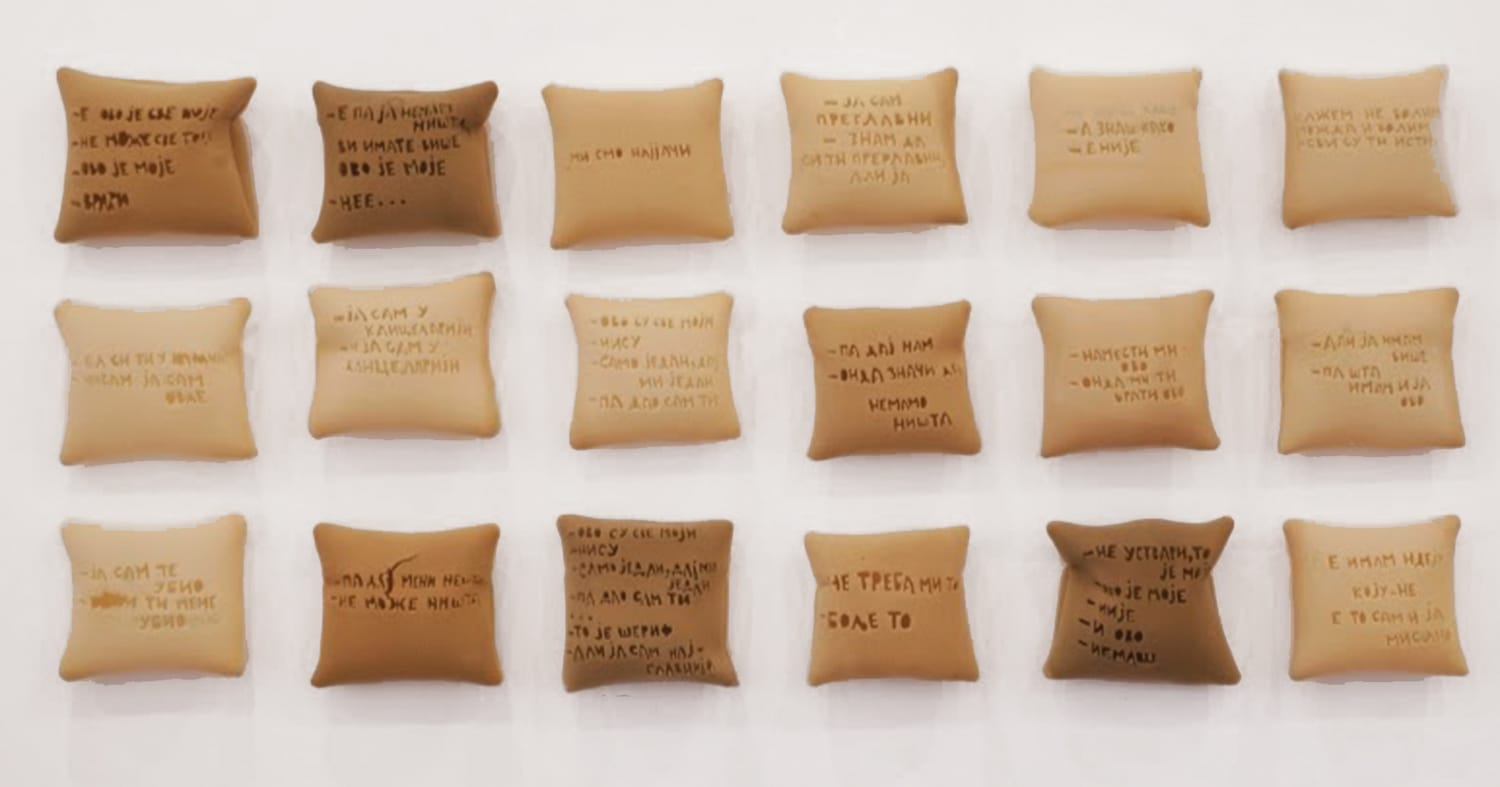 -Е ОВО ЈЕ СВЕ МОЈЕ
-НЕ МОЖЕ СВЕ ТО!
-ОВО ЈЕ МОЈЕ
-Е ПА ЈА НЕМАМ
НИШТА
ВИ ИМАТЕ ВИШЕ
ОВО ЈЕ МОЈЕ
-НЕЕ...
МИ СМО НАЈЈАЧИ
- ЈА САМ
ПРЕГЛАВНИ
- ЗНАМ ДА
СИ ТИ ПРЕГЛАВНИ,
АЛИ ЈА
-А ЗНАШ КАКО
-Е НИЈЕ
НЕ ВОЛИМ
МОЖДА И ВОЛИМ
-СВИ СУ ТИ ИСТИ
СИ ТИ У
ЈА САМ
ОВДЕ
-ЈА САМ У
КАНЦЕЛАРИЈИ
-И ЈА САМ У
КАНЦЕЛАРИЈИ
-ОВО СУ СВЕ МОЈИ
-НИСУ
-САМО ЈЕДАН, ДАЈ
МИ ЈЕДАН
-ПА ДАО САМ ТИ
-ПА ДАЈ НАМ
-ОНДА ЗНАЧИ ДА
НЕМАМО
НИШТА
-НАМЕСТИ МИ
ОВО
-ОНДА МИ ТИ
ВРАТИ ОВО
-АЛИ ЈА ИМАМ
ВИШЕ
-ПА ШТА
ИМАМ И ЈА
ОВО
-ЈА САМ ТЕ
УБИО
ТИ МЕНЕ
УБИО
-ПА ДАЈ МЕНИ
-НЕ МОЖЕ НИШТА
-ОВО СУ СВЕ МОЈИ
-НИСУ
-САМО ЈЕДАН, ДАЈ МИ
ЈЕДАН
-ПА ДАО САМ ТИ
...
-ТО ЈЕ ШЕРИФ
-АЛИ ЈА САМ НАЈ-
ГЛАВНИЈИ
-НЕ ТРЕБА МИ ТО
-БОЉЕ ТО
-НЕ УСТВАРИ, ТО
ЈЕ
-ОВО ЈЕ МОЈЕ
-НИЈЕ
-И ОВО
-НЕМАШ
Е ИМАМ ИДЕЈУ
КОЈУ-НЕ
Е ТО САМ И ЈА
МИСЛИО